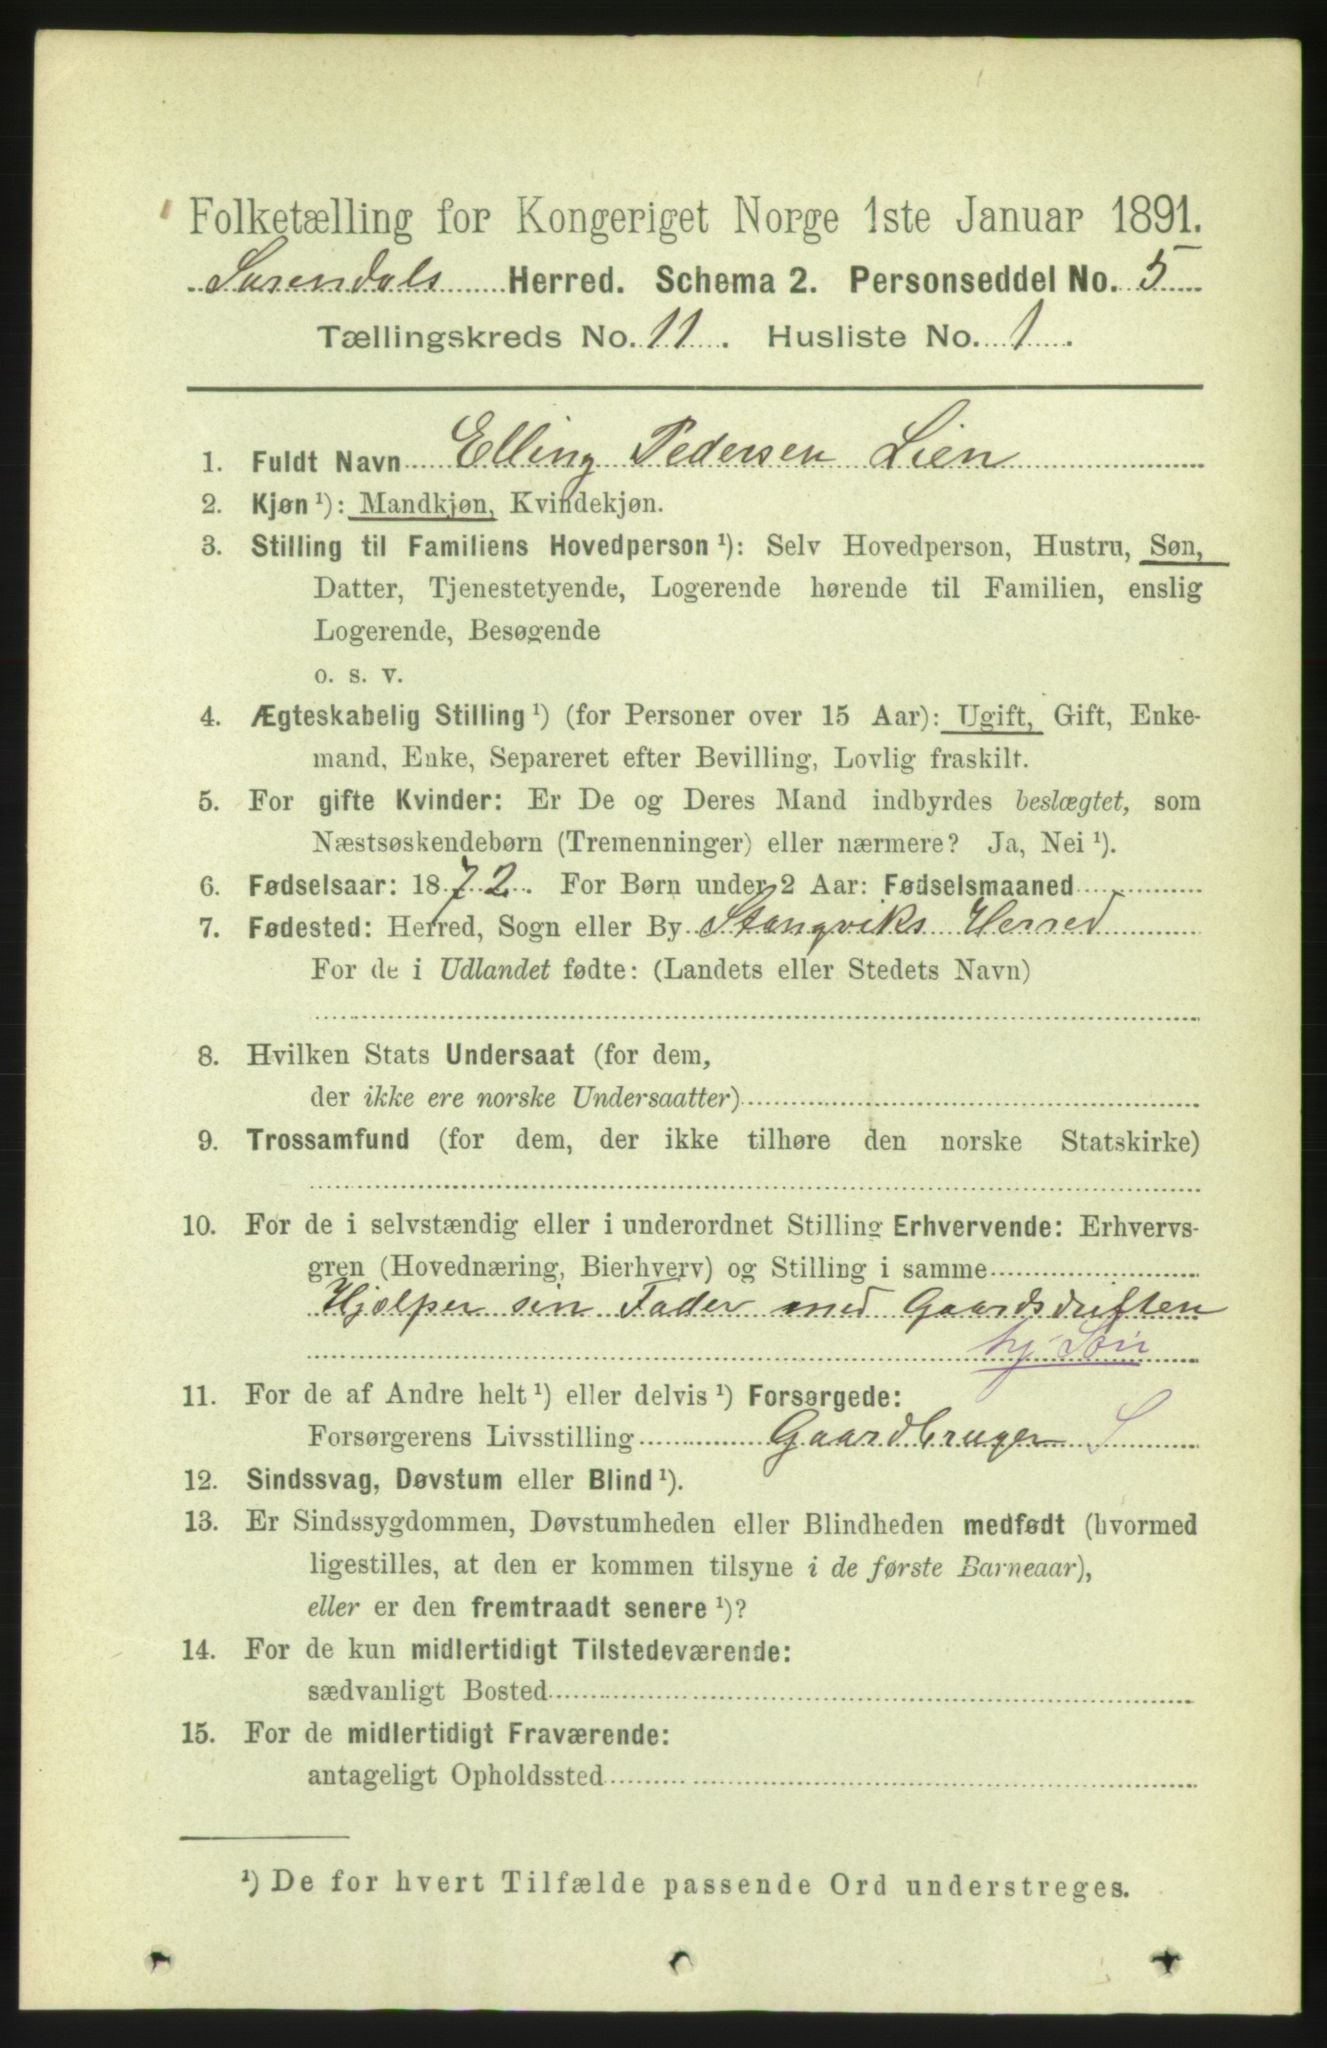 Folketælling for Kongeriget Norge 1ste Januar 1891.
Surendals Herred. Schema 2. Personseddel No. 5
Tællingskreds No. 11. Husliste No. 1.
1. Fuldt Navn Elling Pedersen Lien
2. Kjøn ¹): Mandkjøn, Kvindekjøn.
3. Stilling til Familiens Hovedperson ¹): Selv Hovedperson, Hustru, Søn,
Datter, Tjenestetyende, Logerende hørende til Familien, enslig
Logerende, Besøgende
o. s. v.
4. Ægteskabelig Stilling ¹) (for Personer over 15 Aar): Ugift, Gift, Enke-
mand, Enke, Separeret efter Bevilling, Lovlig fraskilt.
5. For gifte Kvinder: Er De og Deres Mand indbyrdes beslægtet, som
Næstsøskendebørn (Tremenninger) eller nærmere? Ja, Nei ¹).
6. Fødselsaar: 1872. For Børn under 2 Aar: Fødselsmaaned
7. Fødested: Herred, Sogn eller By Stangviks Herred
For de i Udlandet fødte: (Landets eller Stedets Navn)
8. Hvilken Stats Undersaat (for dem,
der ikke ere norske Undersaatter)
9. Trossamfund (for dem, der ikke tilhøre den norske Statskirke)
10. For de i selvstændig eller i underordnet Stilling Erhvervende: Erhvervs-
gren (Hovednæring, Bierhverv) og Stilling i samme
Hjælper sin Fader med Gaardsdriften
hj. Søn
11. For de af Andre helt ¹) eller delvis ¹) Forsørgede:
Forsørgerens Livsstilling Gaardbruger S
12. Sindssvag, Døvstum eller Blind ¹).
13. Er Sindssygdommen, Døvstumheden eller Blindheden medfødt (hvormed
ligestilles, at den er kommen tilsyne i de første Barneaar),
eller er den fremtraadt senere ¹)?
14. For de kun midlertidigt Tilstedeværende:
sædvanligt Bosted
15. For de midlertidigt Fraværende:
antageligt Opholdssted
¹) De for hvert Tilfælde passende Ord understreges.